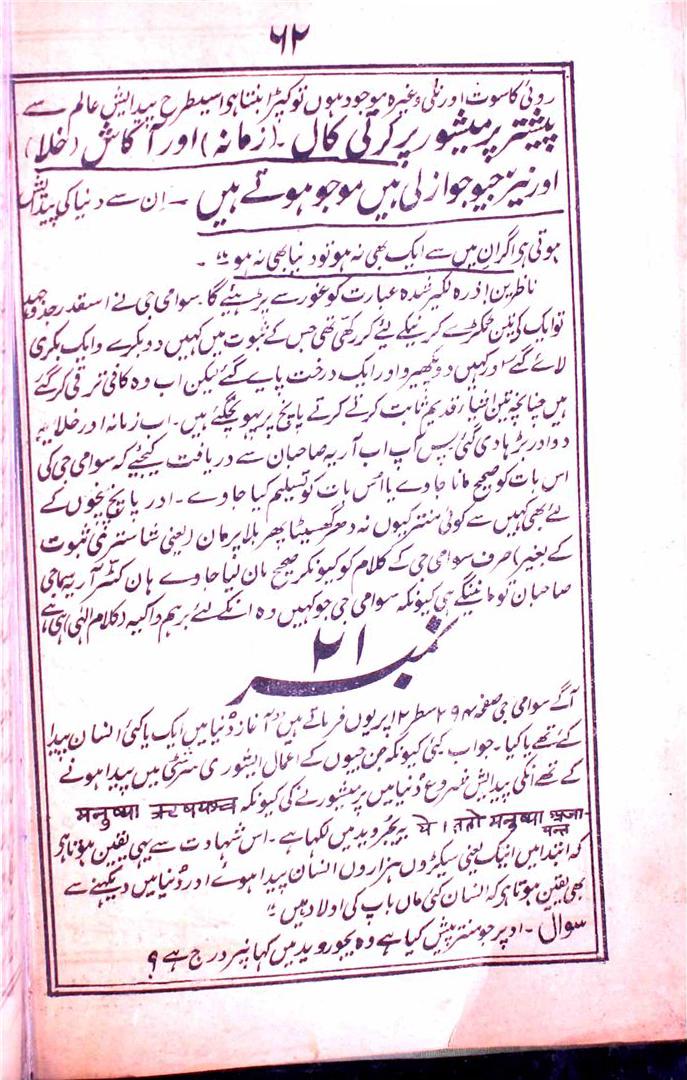 ۶۲
روئی کا سوت اور نلی وغیرہ موجود ہوں تو کپڑا بنتا ہی اسیطرح پیدایش عالم سے
پیشتر پرمیشور پرکرتی کال ۔ (زمانہ) اور آکاش (خلا)
اور نیز جیو جو ازلی ہیں موجو ہوتے ہیں ۔ اِن سے دنیا کی پیدایش
ہوتی ہی اگر ان میں سے ایک بھی نہ ہو تو دنیا بھی نہ ہو ۔
ناظرین! ذرہ لکیر شدہ عبارت کو غور سے پڑہئے گا۔ سوامی جی نے اسقدر جدوجہد
تو ایک کی تین ٹکڑے کرنیکے لئے کر رکھی تھی جس کے ثبوت میں کہیں دو بکرے وایک بکری
لائے گئے اور کہیں دو پکھیرو اور ایک درخت پایے گئے لیکن اب وہ کافی ترقی کر گئے
ہیں چنانچہ تین اشیا قدیم ثابت کرتے کرتے پانچ پر پہونچگئے ہیں۔ اب زمانہ اور خلا یہ
دو اور بڑہا دی گئی پس آپ اب آریہ صاحبان سے دریافت کیجئے کہ سوامی جی کی
اس بات کو صحیح مانا جاوے یا اُس بات کو تسلیم کیا جاوے ۔ اور پانچ پنجوں کے
لئے بھی کہیں سے کوئی منتر کیوں نہ دھر گھسیٹا پھر بلا پرمان (یعنی شاستر کی ثبوت
کے بغیر) صرف سوامی جی کے کلام کو کیونکر صحیح مان لیا جاوے ہان کٹر آریہ سماجی
صاحبان تو مانینگے ہی کیونکہ سوامی جی جو کہیں وہ انکے لئے برہم واکیہ (کلام الٰہی) ہی ہے
نمبر ۲۱
آگے سوامی جی صفحہ ۲۹۴ سطر ۱۲ پر یوں فرماتے ہیں آغاز دُنیا میں ایک یا کئی انسان پیدا
کئے تھے یا کیا ۔ جواب کئی کیونکہ جن جیوں کے اعمال ایشوری سرشٹی میں پیدا ہونے
کے تھے انکی پیدایش شروع دُنیا میں پرمیشور نے کی کیونکہ मनुष्या ऋषयश्च
ये । ततो मनुष्या अजायन्त یہ یجروید میں لکھا ہے ۔ اس شہادت سے یہی یقین ہوتا ہی
کہ ابتدا میں انیک یعنی سیکڑوں ہزاروں انسان پیدا ہوئے اور دُنیا میں دیکھنے سے
بھی یقین ہوتا ہی کہ انسان کئی ماں باپ کی اولاد ہیں
سوال ۔ اوپر جو منتر پیش کیا ہے وہ یجوروید میں کہاں پر درج ہے ؟